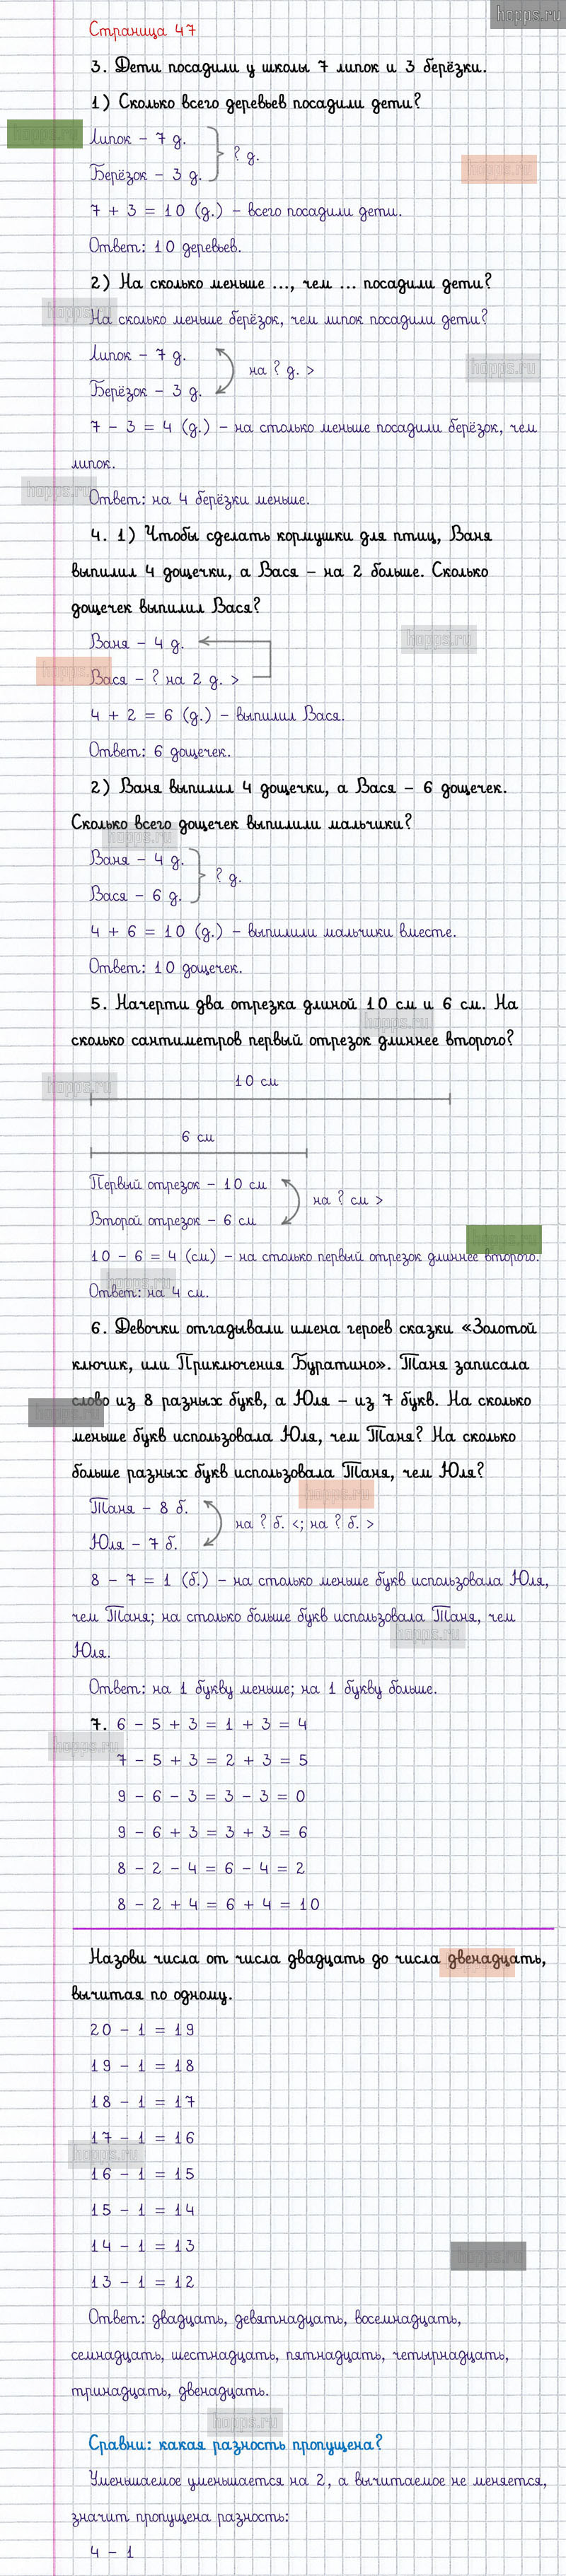 hopps.ru
Страница 47
3. Дети посадили у школы 7 липок и 3 берёзки.
1) Сколько всего деревьев посадили дети?
hopps.ru
Липок – 7 д.
? д.
Берёзок – 3 д.
hopps.ru
7 + 3 = 10 (д.) – всего посадили дети.
Ответ: 10 деревьев.
2) На сколько меньше ..., чем ... посадили дети?
hopps.ru
На сколько меньше берёзок, чем липок посадили дети?
Липок – 7 д.
на ? д. >
hopps.ru
Берёзок – 3 д.
7 – 3 = 4 (д.) – на столько меньше посадили берёзок, чем
липок.
hopps.ru
Ответ: на 4 берёзки меньше.
4. 1) Чтобы сделать кормушки для птиц, Ваня
выпилил 4 дощечки, а Вася – на 2 больше. Сколько
дощечек выпилил Вася?
hopps.ru
Ваня – 4 д.
hopps.ru
Вася – ? на 2 д. >
4 + 2 = 6 (д.) – выпилил Вася.
Ответ: 6 дощечек.
2) Ваня выпилил 4 дощечки, а Вася – 6 дощечек.
Сколько всего дощечек выпилили мальчики?
hopps.ru
Ваня – 4 д.
? д.
Вася – 6 д.
4 + 6 = 10 (д.) – выпилили мальчики вместе.
Ответ: 10 дощечек.
5. Начерти два отрезка длиной 10 см и 6 см. На
hopps.ru
сколько сантиметров первый отрезок длиннее второго?
10 см
hopps.ru
6 см
Первый отрезок – 10 см
на ? см >
Второй отрезок – 6 см
hopps.ru
10 – 6 = 4 (см) – на столько первый отрезок длиннее второго.
hopps.ru
Ответ: на 4 см.
6. Девочки отгадывали имена героев сказки «Золотой
ключик, или Приключения Буратино». Таня записала
слово из 8 разных букв, а Юля – из 7 букв. На сколько
hopps.ru
меньше букв использовала Юля, чем Таня? На сколько
больше разных букв использовала Таня, чем Юля?
hopps.ru
Таня – 8 б.
на ? б. <; на ? б. >
Юля – 7 б.
8 – 7 = 1 (б.) – на столько меньше букв использовала Юля,
чем Таня; на столько больше букв использовала Таня, чем
hopps.ru
Юля.
Ответ: на 1 букву меньше; на 1 букву больше.
7. 6 – 5 + 3 = 1 + 3 = 4
hopps.ru
7 – 5 + 3 = 2 + 3 = 5
9 – 6 – 3 = 3 – 3 = 0
9 – 6 + 3 = 3 + 3 = 6
8 – 2 – 4 = 6 – 4 = 2
8 – 2 + 4 = 6 + 4 = 10
Назови числа от числа двадцать до числа двенадцать,
вычитая по одному.
20 – 1 = 19
19 – 1 = 18
18 – 1 = 17
17 – 1 = 16
hopps.ru
16 – 1 = 15
15 – 1 = 14
14 – 1 = 13
hopps.ru
13 – 1 = 12
Ответ: двадцать, девятнадцать, восемнадцать,
семнадцать, шестнадцать, пятнадцать, четырнадцать,
тринадцать, двенадцать.
hopps.ru
Сравни: какая разность пропущена?
Уменьшаемое уменьшается на 2, а вычитаемое не меняется,
значит пропущена разность:
4 – 1